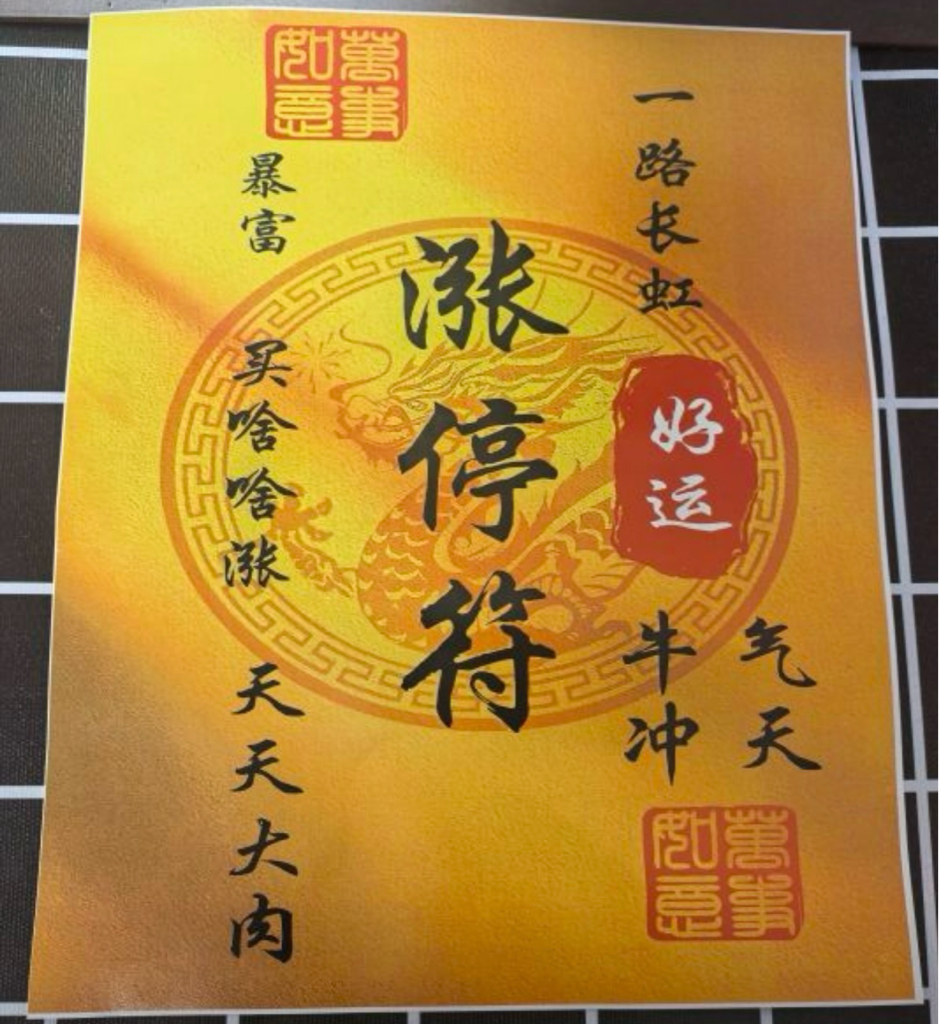 萬事如意
一路长虹
好运
牛气
冲天
涨停符
暴富
买啥啥涨
天天大肉
萬事如意